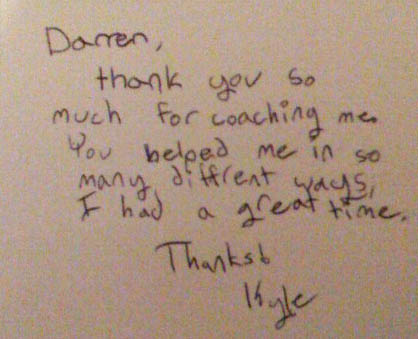 Darren,
thank you so
much for coaching me.
You helped me in so
many diffrent ways,
I had a great time.
Thanks!
Kyle